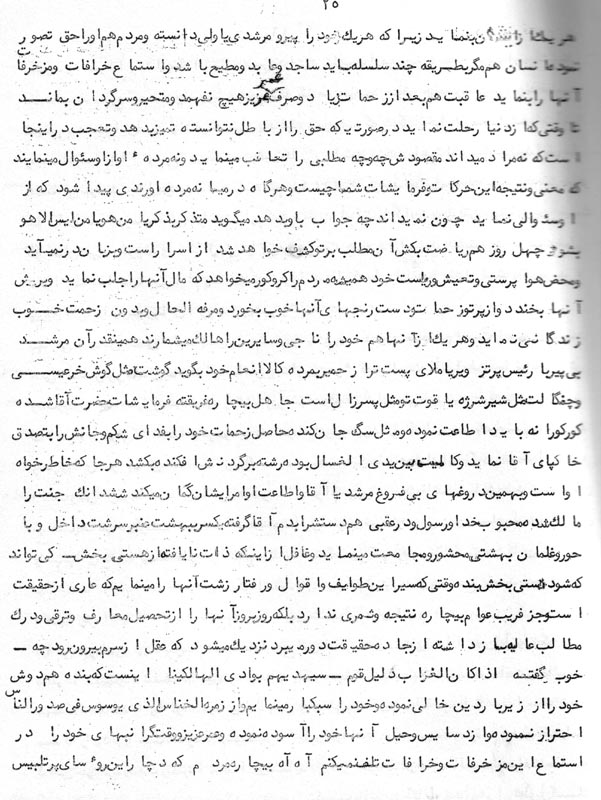 ٢٥
هریک از اینان بنماید زیرا که هریک خود را پیرو مرشدی یا ولی دانسته و مردم هم او را حق تصور
نمود ها نسان هم مگر بطریقه چند سلسله باید ساجد و عابد و مطیع باشد و استماع خرافات و مزخرفات
آنها را بنماید عاقبت هم بعد از زحمات زیاد و صرف عمر عزیز هیچ نفهمد و متحیر و سرگردان بماند
تا وقتی که از دنیا رحلت نماید در صورتیکه حق را از باطل نتوانسته تمیز بدهد و تعجب در اینجا
است که نه مراد میداند مقصودش چه و چه مطلبی را تعاقب مینماید و نه مرده ٔ او از او سئوال مینمایند
که معنی و نتیجه این حرکات و فرمایشات شما چیست و هرگاه در میان مرده اورندی پیدا شود که از
او سئوالی نماید چون نمیداند چه جواب باو بدهد میگوید متذکر بذکر یا من هو یا من لیس الا هو
بشو و چهل روز هم ریاضت بکش آن مطلب بر تو کشف خواهد شد از اسرار است و بزبان در نمیآید
و محض هوا پرستی و تعیش و ریاست خود همیشه مردم را کر و کور میخواهد که مال آنها را جلب نماید و بریش
آنها بخندد و از پرتو زحمات و دست رنجهای آنها خوب بخورد و مرفه الحال و بدون زحمت خوب
زندگانی نماید و هریک از آنها هم خود را ناجی و سایرین را هالک میشمارند همینقدر آن مرشد
بی پیر یا رئیس پر تزویر یا ملای پست تر از حمیر بمرده کالانعام خود بگوید گوشت مثل گوش خر عیسی
و چنگالت مثل شیر شرزه یا قوت تو مثل پسر زال است جاهل بیچاره فریفته فرمایشات حضرت آقا شده
کورکورانه باید اطاعت نموده و مثل سگ جان کند و حاصل زحمات خود را بفدای شکم و جانش را بتصدق
خاکپای آقا نماید و کالمیت بین یدی الغسال بوده رشته بر گردنش افکنده بکشد هرجا که خاطر خواه
او است و بهمین دروغهای بی فروغ مرشد یا آقا و اطاعت اوامر ایشان گمان میکند ششدانک جنت را
مالک شده محبوب خدا و رسول و در عقبی هم دستش را بدم آقا گرفته یکسر ببهشت عنبر سرشت داخل و با
حور و غلمان بهشتی محشور و مجامعت مینماید و غافل از اینکه ذات نایافته از هستی بخش ــ کی تواند
که شود هستی بخش بنده وقتی که سیر این طوایف و اقوال و رفتار زشت آنها را مینمایم که عاری از حقیقت
است و جز فریب عوام بیچاره نتیجه و ثمری ندارد بلکه روز بروز آنها را از تحصیل معارف و ترقی و درک
مطالب عالیه باز داشته از جاده حقیقت دور میبرد نزدیک میشود که عقل از سرم بیرون رود چه ــ
خوب گفته اذا کان الغراب دلیل قوم ــ سیهدیهم بوادی الهالکینا اینست که بنده هم دوش
خود را از زیر بار دین خالی نموده و خود را سبکبار مینمایم و از زمره الخناس الذی یوسوس فی صدور الناس
احتراز نموده و از دسایس و حیل آنها خود را آسوده نموده و عمر عزیز و وقت گرانبهای خود را در
استماع این مزخرفات و خرافات تلف نمیکنم آه آه بیچاره مردم که دچار این روٴسای پر تلبیس